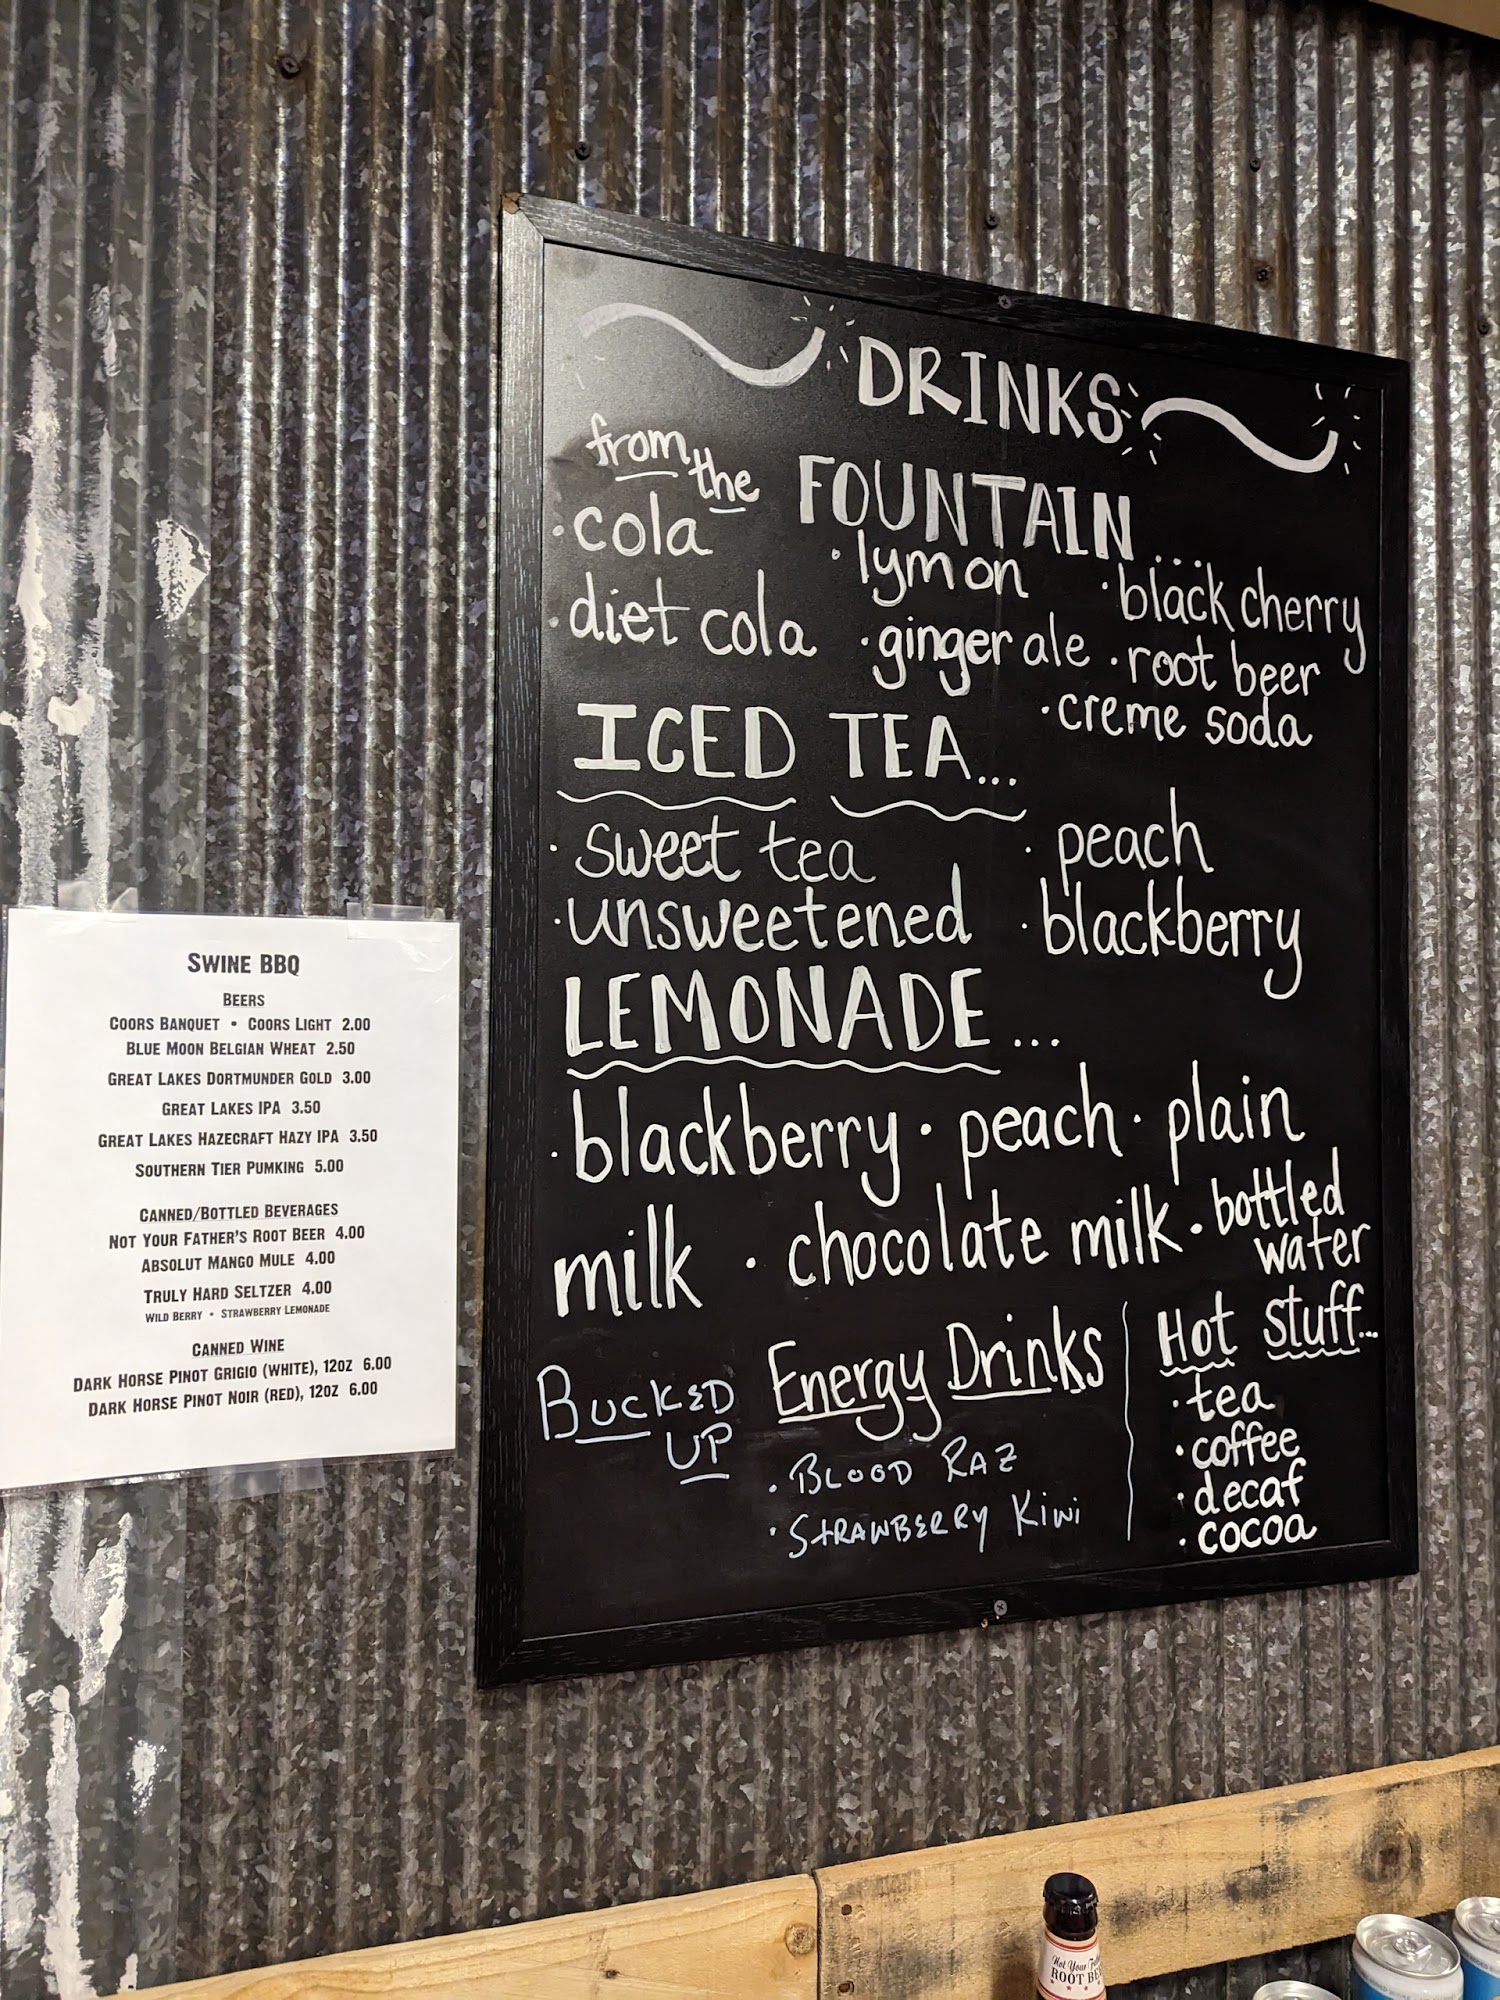 DRINKS
from the FOUNTAIN...
· cola · lymon · black cherry
· diet cola · ginger ale · root beer
· creme soda
ICED TEA...
· sweet tea · peach
· unsweetened · blackberry
LEMONADE...
· blackberry · peach · plain
milk · chocolate milk · bottled water
BUCKED UP
Energy Drinks
· BLOOD RAZ
· STRAWBERRY KIWI
Hot stuff...
· tea
· coffee
· decaf
· cocoa
SWINE BBQ
BEERS
COORS BANQUET • COORS LIGHT 2.00
BLUE MOON BELGIAN WHEAT 2.50
GREAT LAKES DORTMUNDER GOLD 3.00
GREAT LAKES IPA 3.50
GREAT LAKES HAZECRAFT HAZY IPA 3.50
SOUTHERN TIER PUMKING 5.00
CANNED/BOTTLED BEVERAGES
NOT YOUR FATHER'S ROOT BEER 4.00
ABSOLUT MANGO MULE 4.00
TRULY HARD SELTZER 4.00
WILD BERRY • STRAWBERRY LEMONADE
CANNED WINE
DARK HORSE PINOT GRIGIO (WHITE), 12OZ 6.00
DARK HORSE PINOT NOIR (RED), 12OZ 6.00
Not Your
ROOT